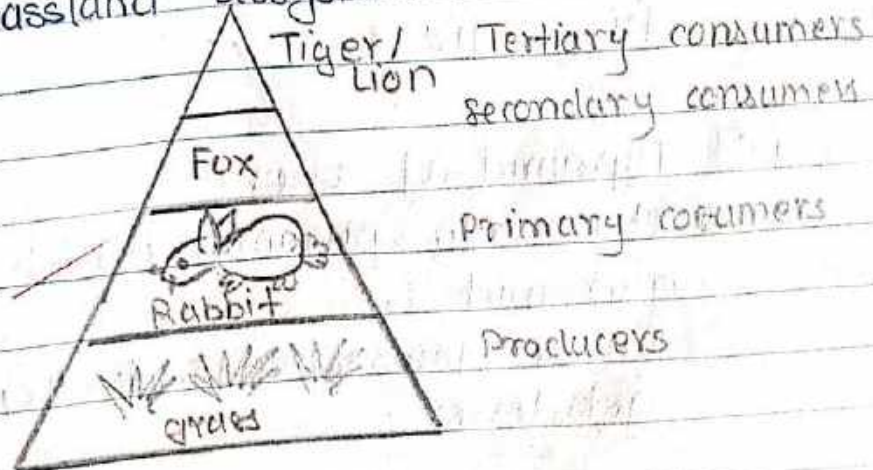 Tiger/ Tertiary consumers
Lion
secondary consumers
Fox
Primary cosumers
Rabbit
Producers
grass